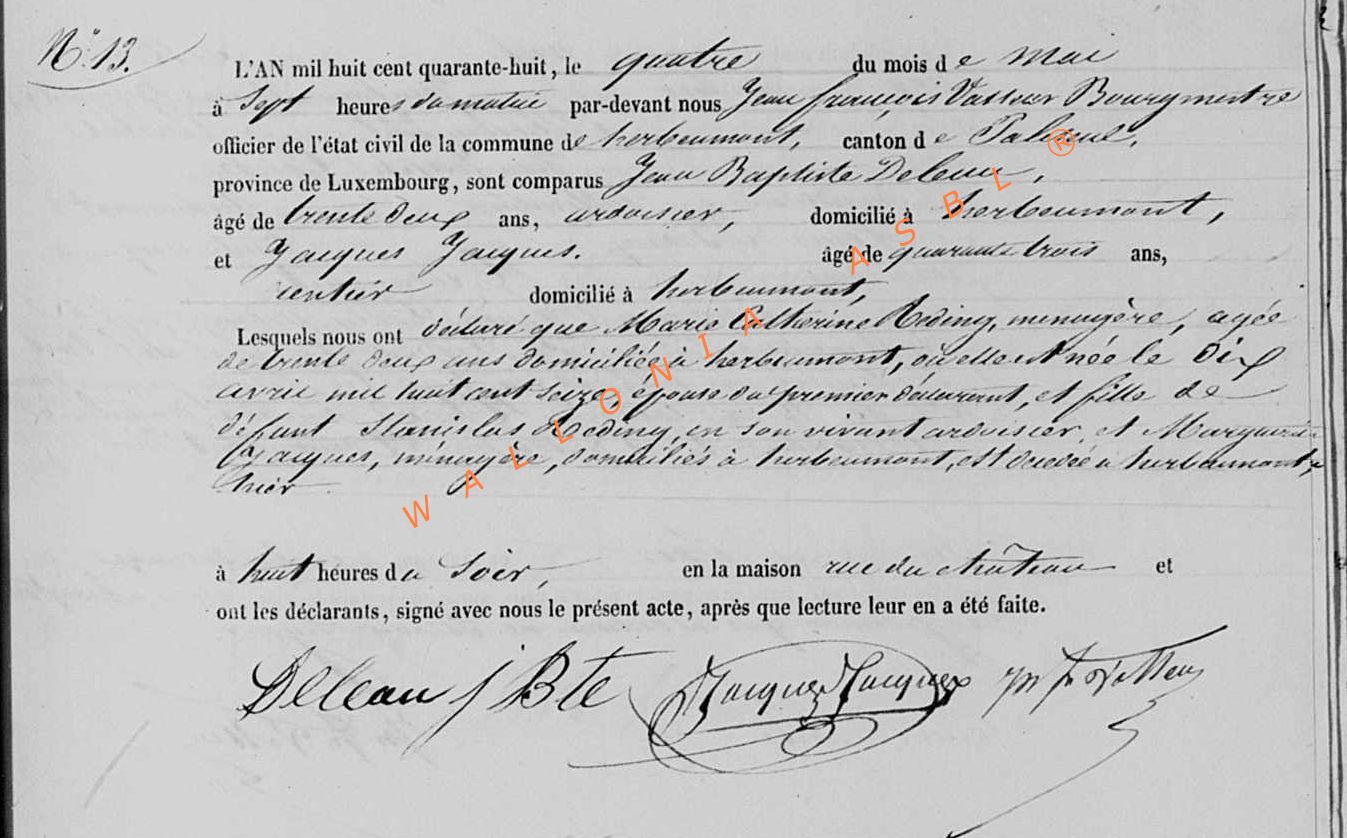 N° 13.
L'AN mil huit cent quarante-huit, le quatre du mois de Mai
à Sept heures du matin par-devant nous Jean françois Vasseur Bourgmestre
officier de l'état civil de la commune de herbeumont, canton de Paliseul,
province de Luxembourg, sont comparus Jean Baptiste Deleau,
âgé de trente deux ans, ardoisier, domicilié à herbeumont,
et Jacques Jacques. âgé de quarante trois ans,
rentier domicilié à herbeumont,
Lesquels nous ont déclaré que Marie Catherine Reding, menagère, agée
de trente deux ans domiciliée à herbeumont, où elle est née le dix
avril mil huit cent seize, épouse du premier déclarant, et fille de
défunt Stanislas Reding, en son vivant ardoisier, et Marguerite
Jacques, ménagère, domiciliés à herbeumont, est decédée à herbeumont,
hier
à huit heures du Soir, en la maison rue du château et
ont les déclarants, signé avec nous le présent acte, après que lecture leur en a été faite.
Deleau J Bte Jacques Jacques
WALLONIA ASBL ®